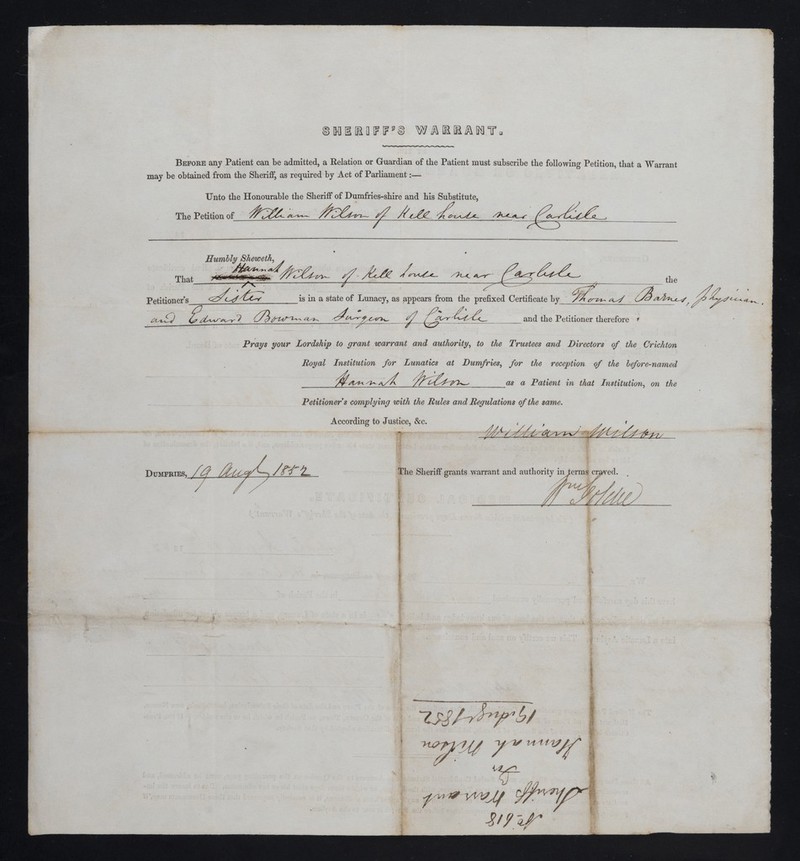 SHERIFF'S WARRANT.
BEFORE any Patient can be admitted, a Relation or Guardian of the Patient must subscribe the following Petition, that a Warrant
may be obtained from the Sheriff, as required by Act of Parliament :—
Unto the Honourable the Sheriff of Dumfries-shire and his Substitute,
The Petition of William Wilson of Kell house near Carlisle
Humbly Sheweth,
Hannah
That Wilson of Kell house near Carlisle the
Petitioner's Sister is in a state of Lunacy, as appears from the prefixed Certificate by Thomas Barnes, physician,
and Edward Bowman Surgeon of Carlisle and the Petitioner therefore
Prays your Lordship to grant warrant and authority, to the Trustees and Directors of the Crichton
Royal Institution for Lunatics at Dumfries, for the reception of the before-named
Hannah Wilson as a Patient in that Institution, on the
Petitioner's complying with the Rules and Regulations of the same.
According to Justice, &c.
William Wilson
DUMFRIES, 19 Augt 1852 The Sheriff grants warrant and authority in terms craved.
No. 618
Sheriffs Warrant
for
Hannah Wilson
19 Augt 1852